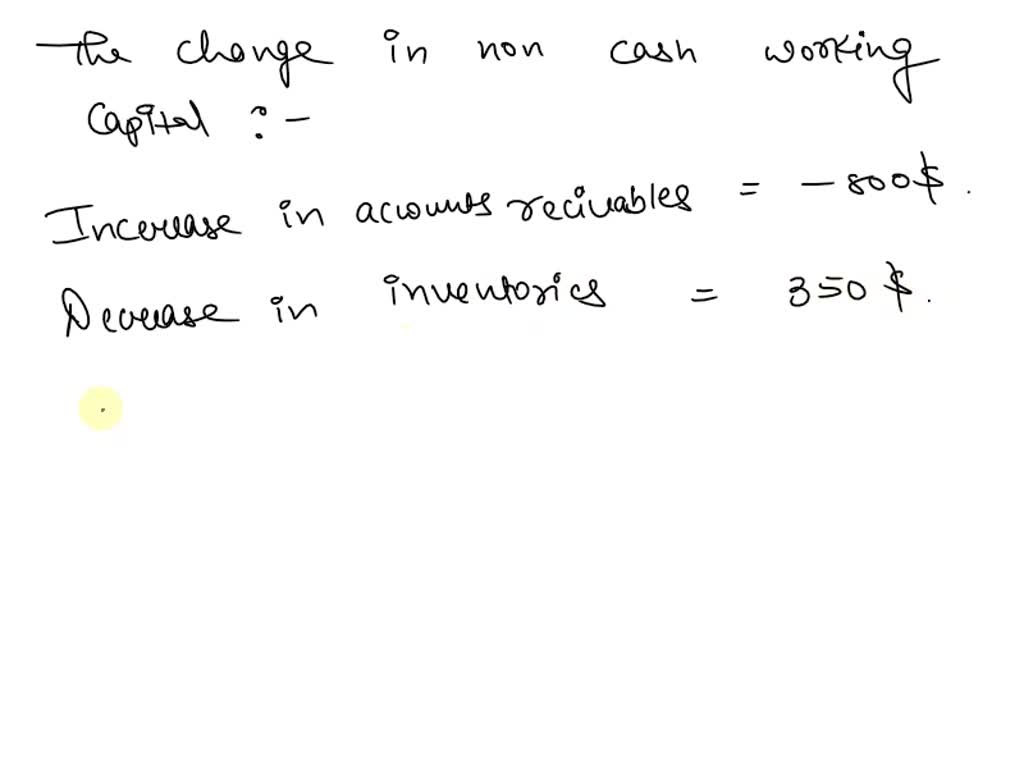 The change in non cash working
Capital :-
Increase in accounts recivables = - 800$.
Decrease in inventories = 350 $.